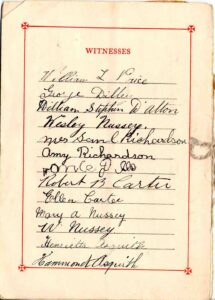 WITNESSES
William L Price
George Dilley
William Stephen D'Alton
Wesley Nussey
Mrs Saml Richardson
Amy Richardson
Robert B Carter
Ellen Carter
Mary A Nussey
W Nussey
Henrietta Asquith
Hammond Asquith